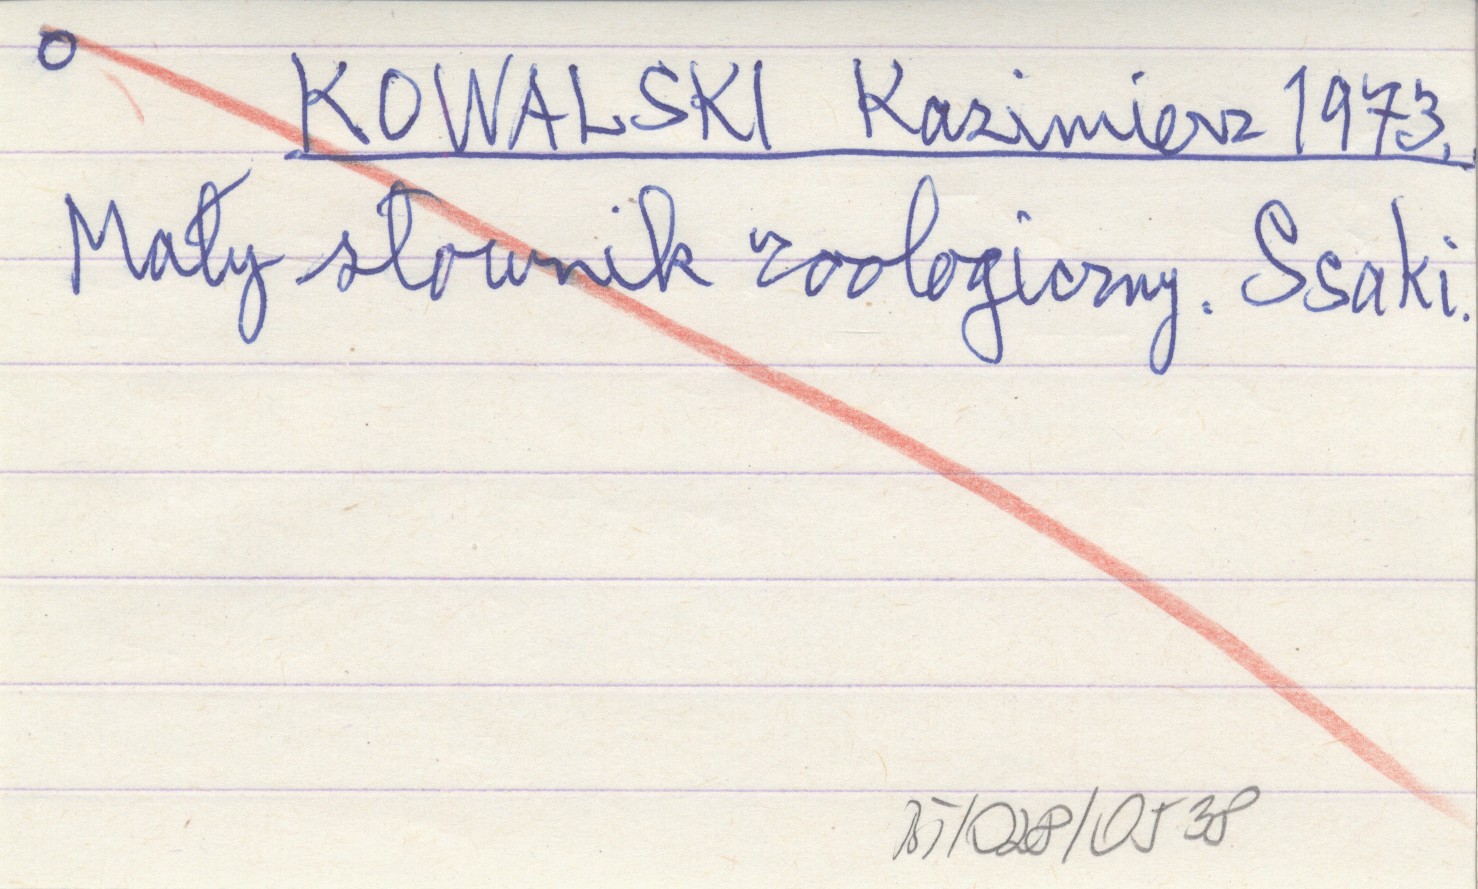 KOWALSKI Kazimierz 1973.
Mały słownik zoologiczny. Ssaki.
BJ/028/0538